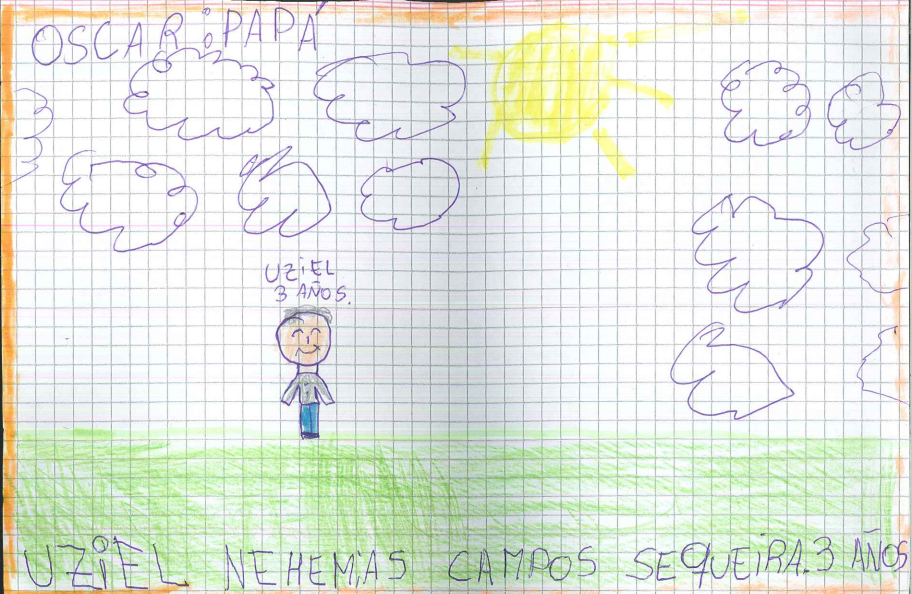 OSCAR : PAPÁ
UZiEL
3 AÑOS.
UZiEL NEHEMiAS CAMPOS SEQUEiRA. 3 AÑOS